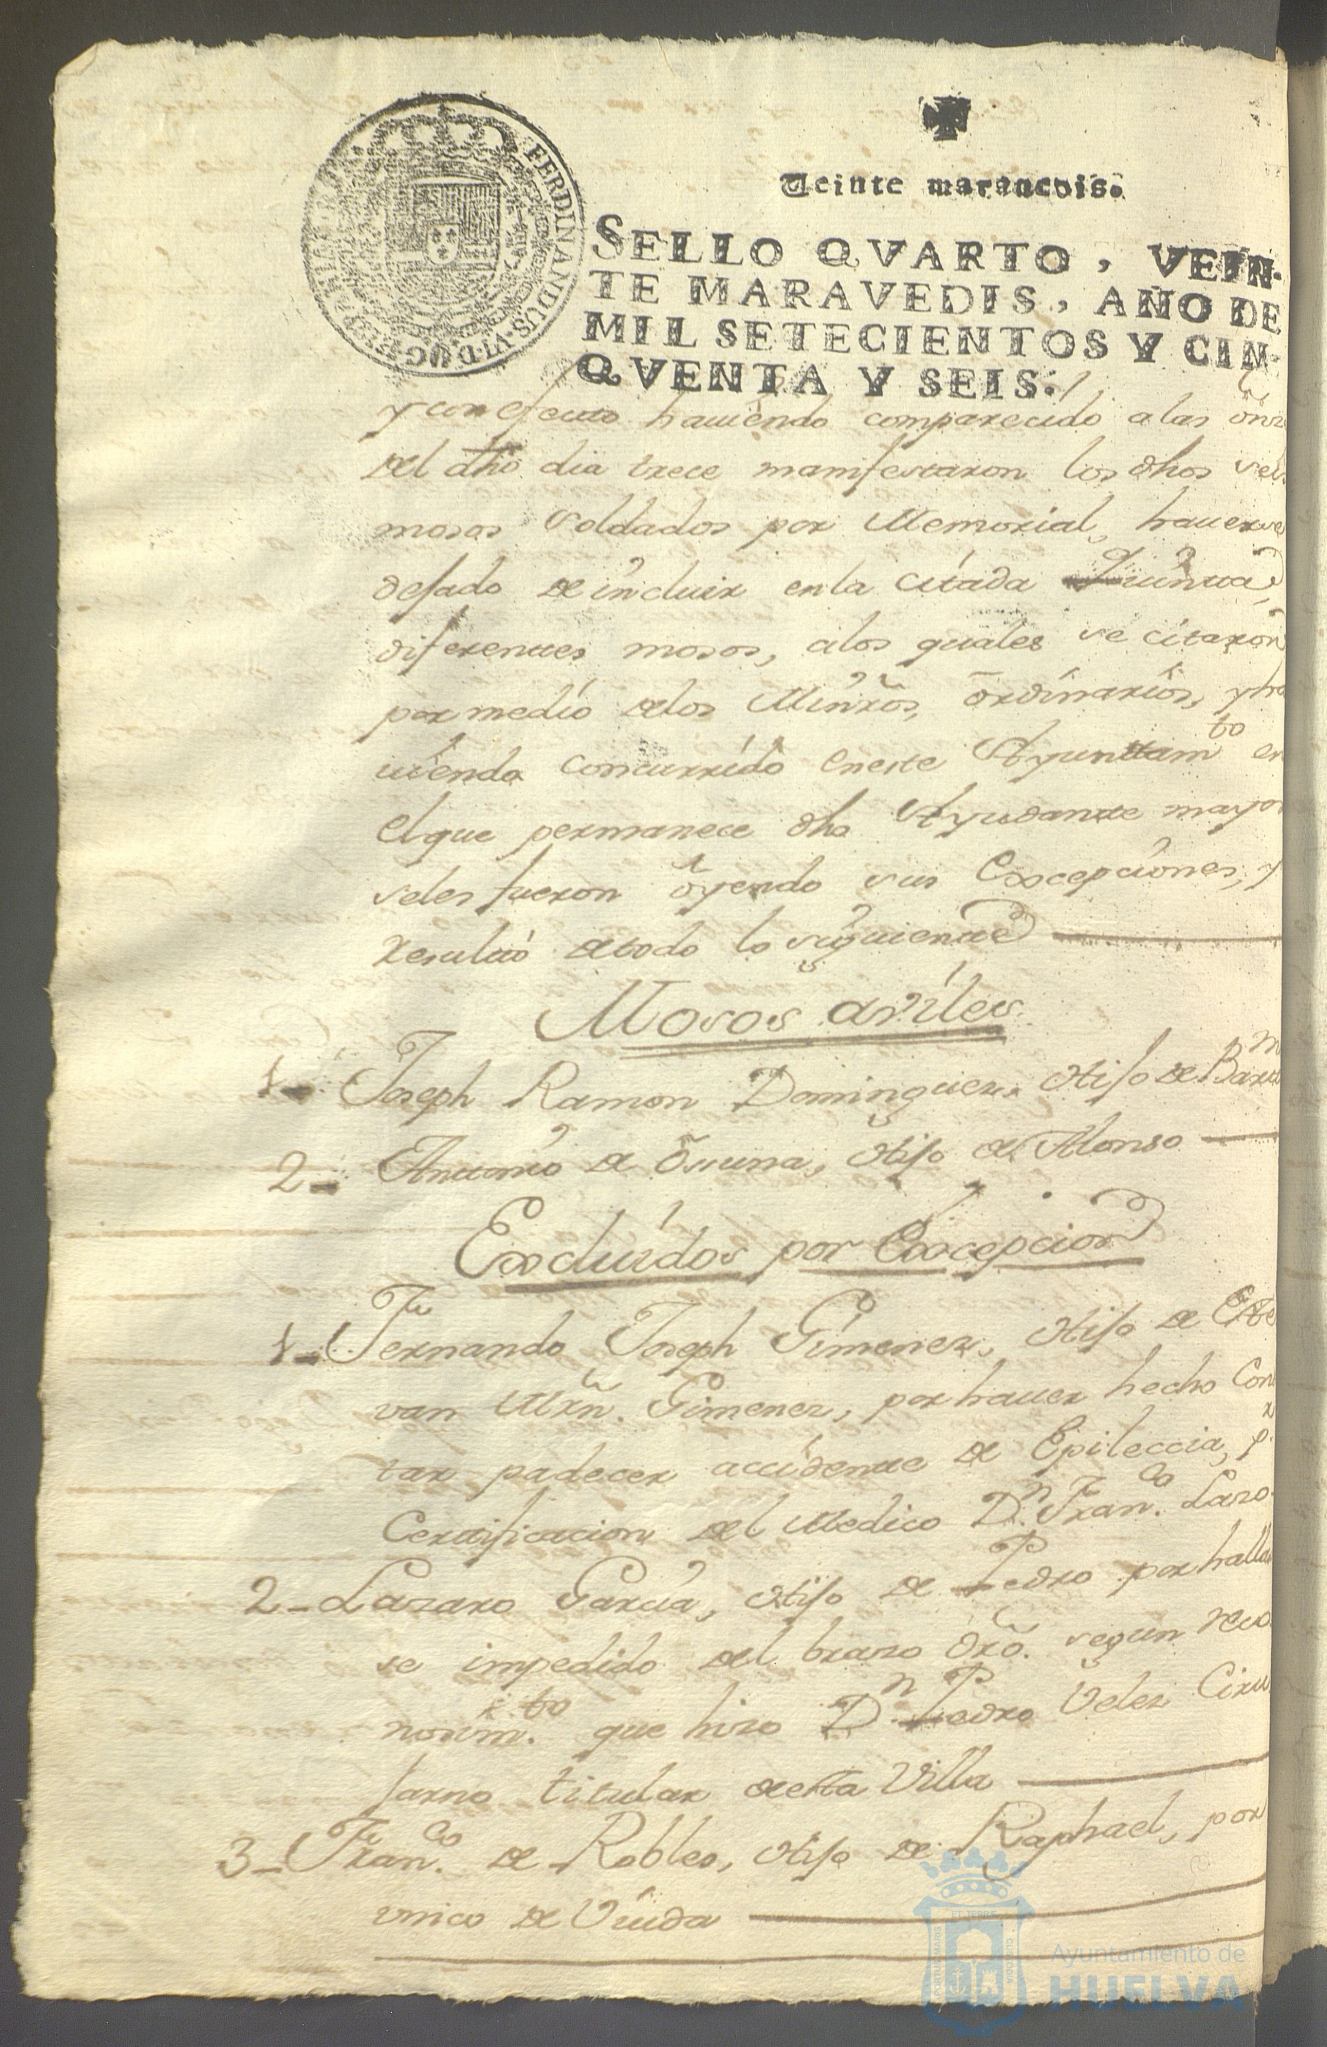 FERDINANDUS.VI.D.G.
Veinte maravedis.
SELLO QVARTO, VEIN-
TE MARAVEDIS, AÑO DE
MIL SETECIENTOS Y CIN-
QVENTA Y SEIS.
y con efecto haviendo comparecido a las
del dho dia trece manifestaron los dhos seis
mosos Soldados por Memorial, haverse
dejado de incluir en la citada Quinta,
diferentes mosos, a los quales se citaron
por medio de los Minrõs, ordinarios, y ha
viendo concurrido en este Ayunttamto en
el que permanece dho Ayudante mayor
seles fueron oyendo sus Excepciones, y
resultó de todo lo siguiente
Mosos aviles
1- Joseph Ramon Dominguez, Hijo de Barme
2- Antonio de Ossuna, Hijo de Alonso
Excluidos por Excepcion
1- Fernando Joseph Gimenez, Hijo de Este
van Mrñ. Gimenez, por haver hecho Cons
tar padecer accidente de Epileccia, pr
Certificacion del Medico Dn Franco. Lazo.
2- Lazaro Garcia, Hijo de Pedro por hallar
se impedido del brazo drõ. segun reco
nosimto. que hizo Dn Pedro Velez Ciru
jano titular desta Villa
3- Franco. de Robles, Hijo de Raphael, por
unico de Viuda
Ayuntamiento de
HUELVA